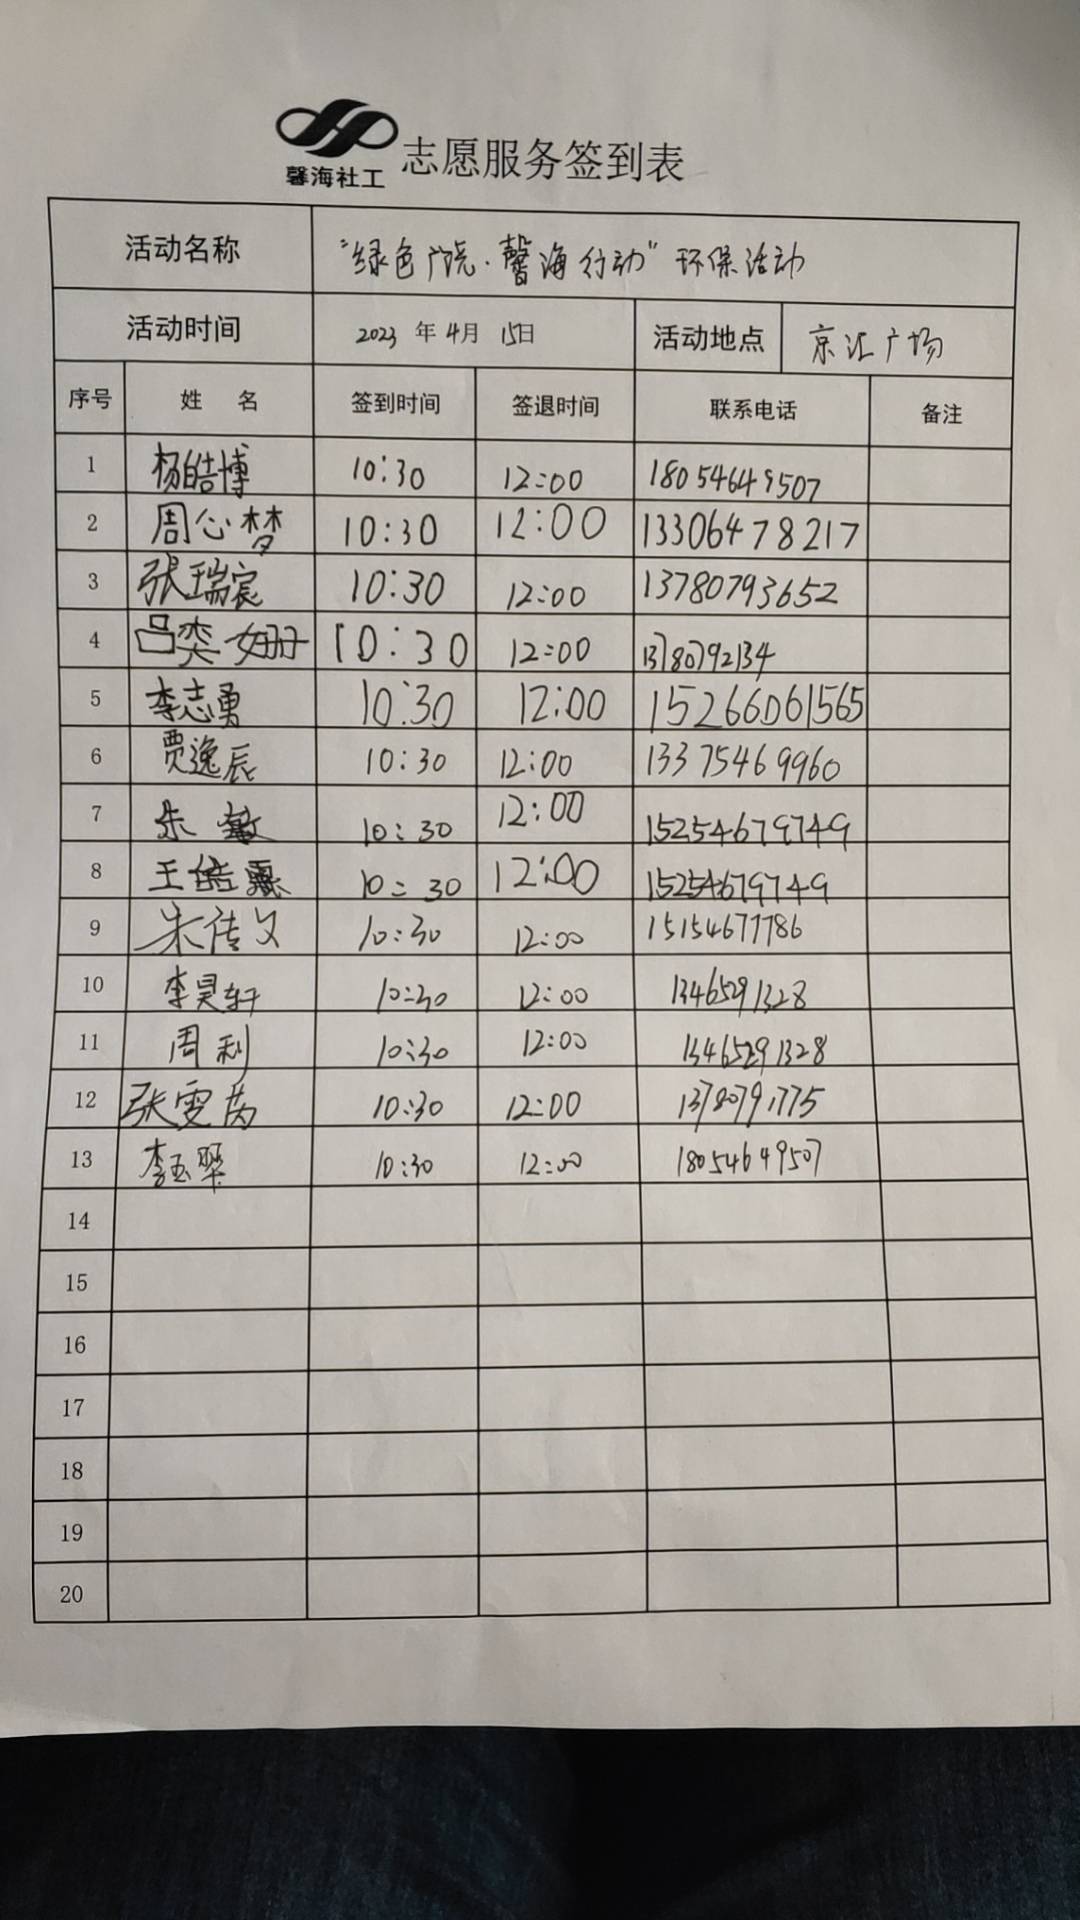 馨海社工 志愿服务签到表
活动名称 “绿色广饶·馨海行动”环保活动
活动时间 2023 年 4月 15日 活动地点 京汇广场
序号 姓 名 签到时间 签退时间 联系电话 备注
1 杨皓博 10:30 12:00 18054649507
2 周心梦 10:30 12:00 13306478217
3 张瑞宸 10:30 12:00 13780793652
4 吕奕姗 10:30 12:00 13780792134
5 李志勇 10:30 12:00 15266061565
6 贾逸辰 10:30 12:00 13375469960
7 朱敏 10:30 12:00 15254679749
8 王皓霖 10:30 12:00 15254679749
9 朱传文 10:30 12:00 15154677786
10 李昊轩 10:30 12:00 13465291328
11 周利 10:30 12:00 13465291328
12 张雯芮 10:30 12:00 13780791775
13 李玉翠 10:30 12:00 18054649507
14
15
16
17
18
19
20